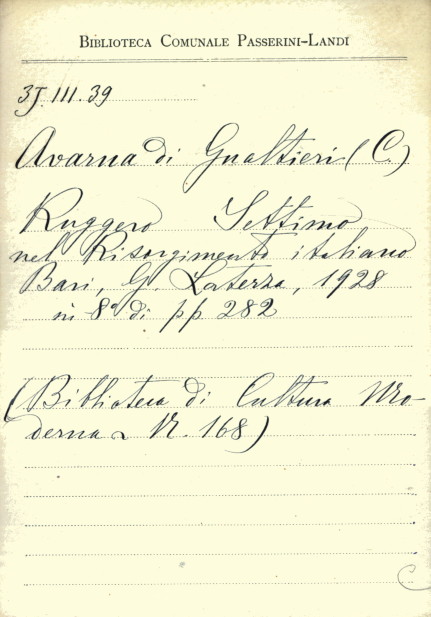 BIBLIOTECA COMUNALE PASSERINI-LANDI
3J.III.39
Avarna di Gualtieri (C.)
Ruggero Settimo
nel Risorgimento italiano
Bari, G. Laterza, 1928
in 8° di pp 282
(Biblioteca di Cultura Mo-
derna N. 168)
C